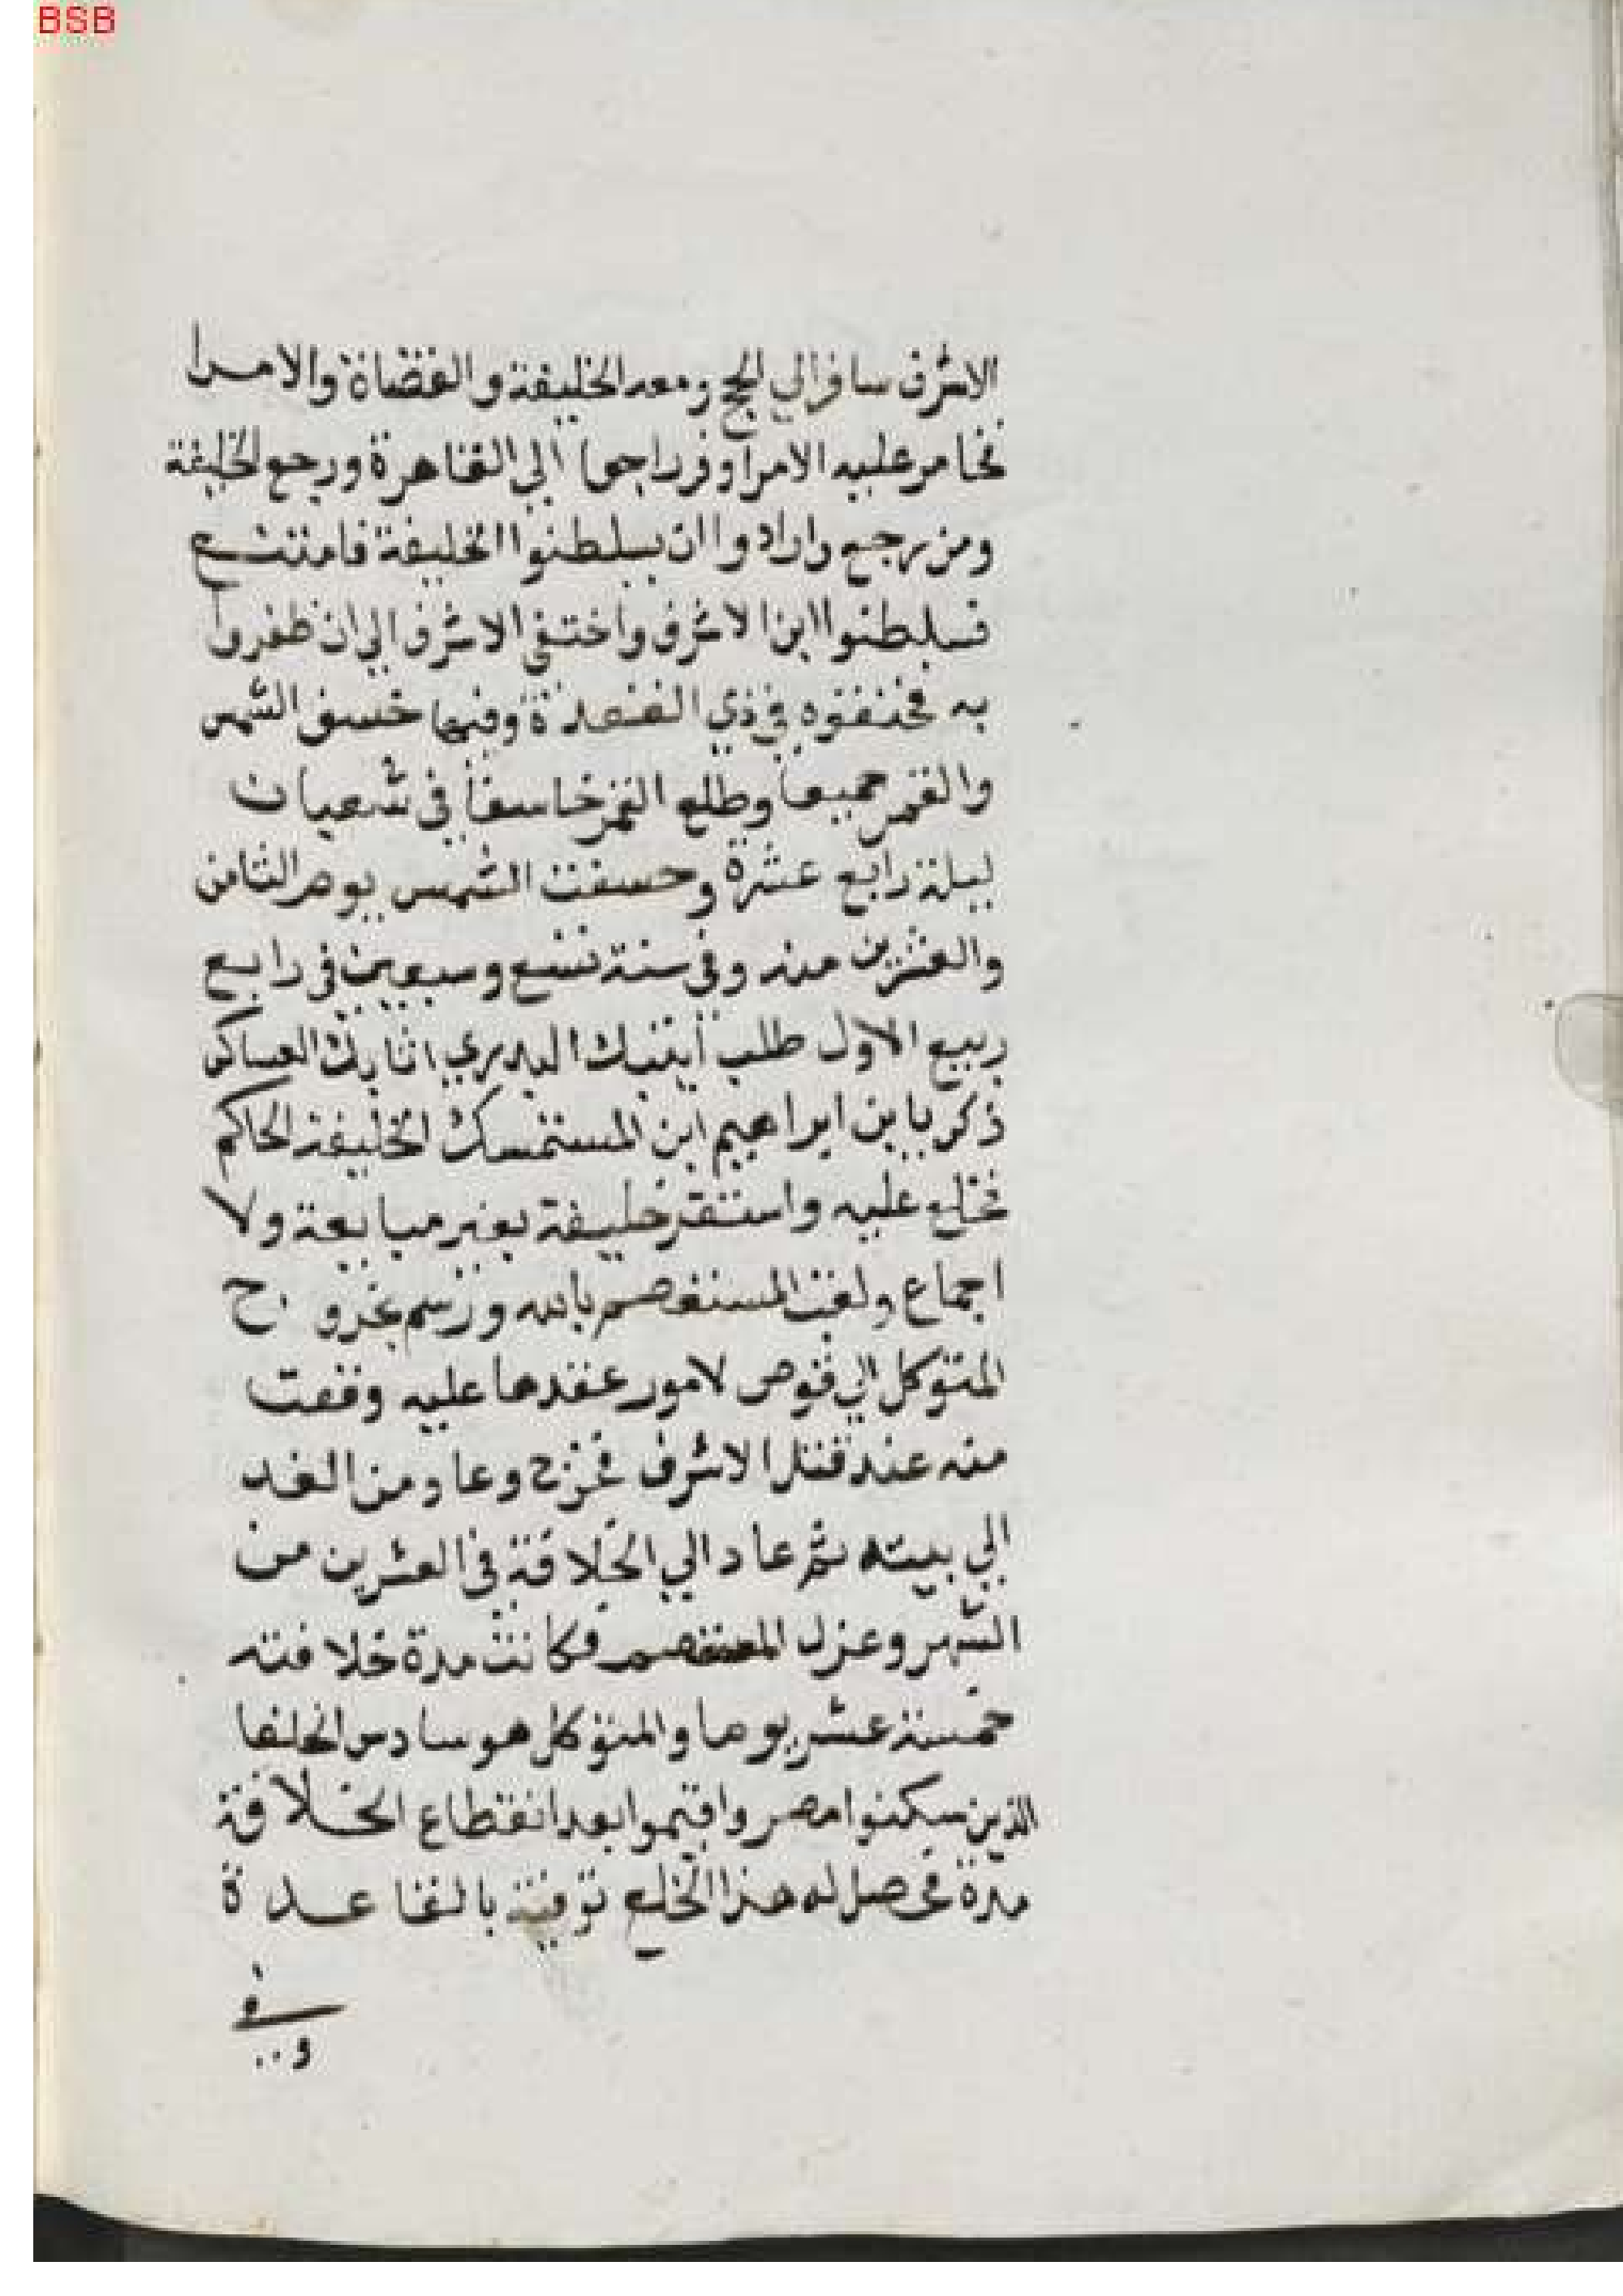 BSB
الاشرف سافر الي الحج ومعه الخليفة والقضاة والامرا
فخامر عليه الامرا وفر راجعا الي القاهرة ورجع الخليفة
ومن رجع واراد وا ان يسلطنوا الخليفة فامتنع
فسلطنوا ابن الاشرف واختفي الاشرف الي ان ظفروا
به فخنقوه في ذي القعدة وفيها خسف الشمس
والقمر جميعا وطلع القمر خاسفا في شعبان
ليلة رابع عشرة وخسفت الشمس يوم الثامن
والعشرين منه وفي سنة تسع وسبعين في رابع
ربيع الاول طلب أينبك البدري اتابك العساكر
زكريا بن ابراهيم ابن المستمسك الخليفة الحاكم
فخلع عليه واستقر خليفة بغير مبايعة ولا
اجماع ولقب المستعصم بالله ورسم بخروج
المتوكل الي قوص لامور عقدها عليه وقعت
منه عند قتل الاشرف فخرج وعاد من الغد
الي بيته ثم عاد الي الخلافة في العشرين من
الشهر وعزل المستعصم فكانت مدة خلافته
خمسة عشر يوما والمتوكل هو سادس الخلفا
الذين سكنوا مصر واقيموا بعد انقطاع الخلافة
مدة فحصل له هذا الخلع توفية بالقاعدة